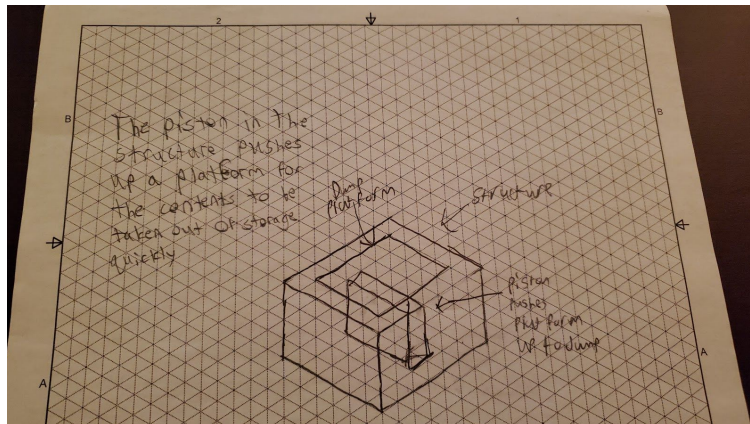 2
1
B
B
The piston in the
structure pushes
up a platform for
the contents to be
taken out of storage
quickly
Dump
Platform
structure
piston
pushes
platform
up to dump
A
A